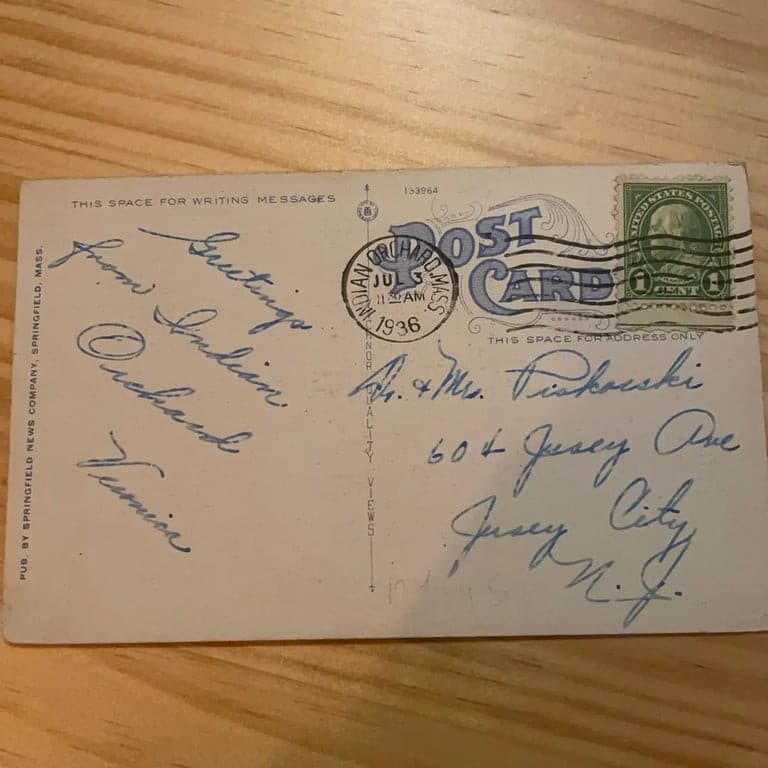 THIS SPACE FOR WRITING MESSAGES
Greetings
from Indian
Orchard
Veronica
PUB. BY SPRINGFIELD NEWS COMPANY, SPRINGFIELD, MASS.
133964
POST
CARD
INDIAN ORCHARD, MASS
JUL 3
AM
1936
UNITED STATES POSTAGE
1 CENT 1
THIS SPACE FOR ADDRESS ONLY
QUALITY VIEWS
& Mrs. Piskosski
604 Jersey Ave
Jersey City
N.J.